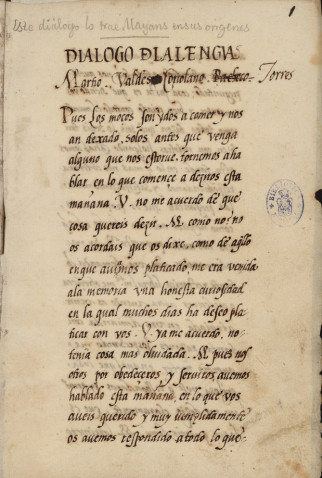 1
Este diálogo lo trae Mayans en sus orígenes
DIALOGO D LA LENGVA
Martio. Valdes Coriolano Pacheco - Torres
Pues los moços son ydos a comer y nos
an dexado solos antes que venga
alguno que nos estorue. tornemos a ha
blar en lo que comence a deziros esta
mañana. V. no me acuerdo de que
cosa quereis dezir. M. como no? no
os acordais que os dixe, como de aqllo
en que auiamos platicado, me era venida
a la memoria vna honesta curiosidad
en la qual muchos dias ha deseo pla
ticar con vos. V. ya me acuerdo, no
tenia cosa mas oluidada. M. pues nos
otros por obedeceros y seruiros, auemos
hablado esta mañana, en lo que vos
aueis querido y muy cumplidamente
os auemos respondido a todo lo que